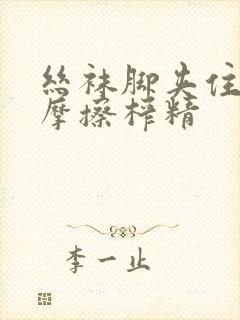 丝袜脚夹住
摩擦榨精
李一止